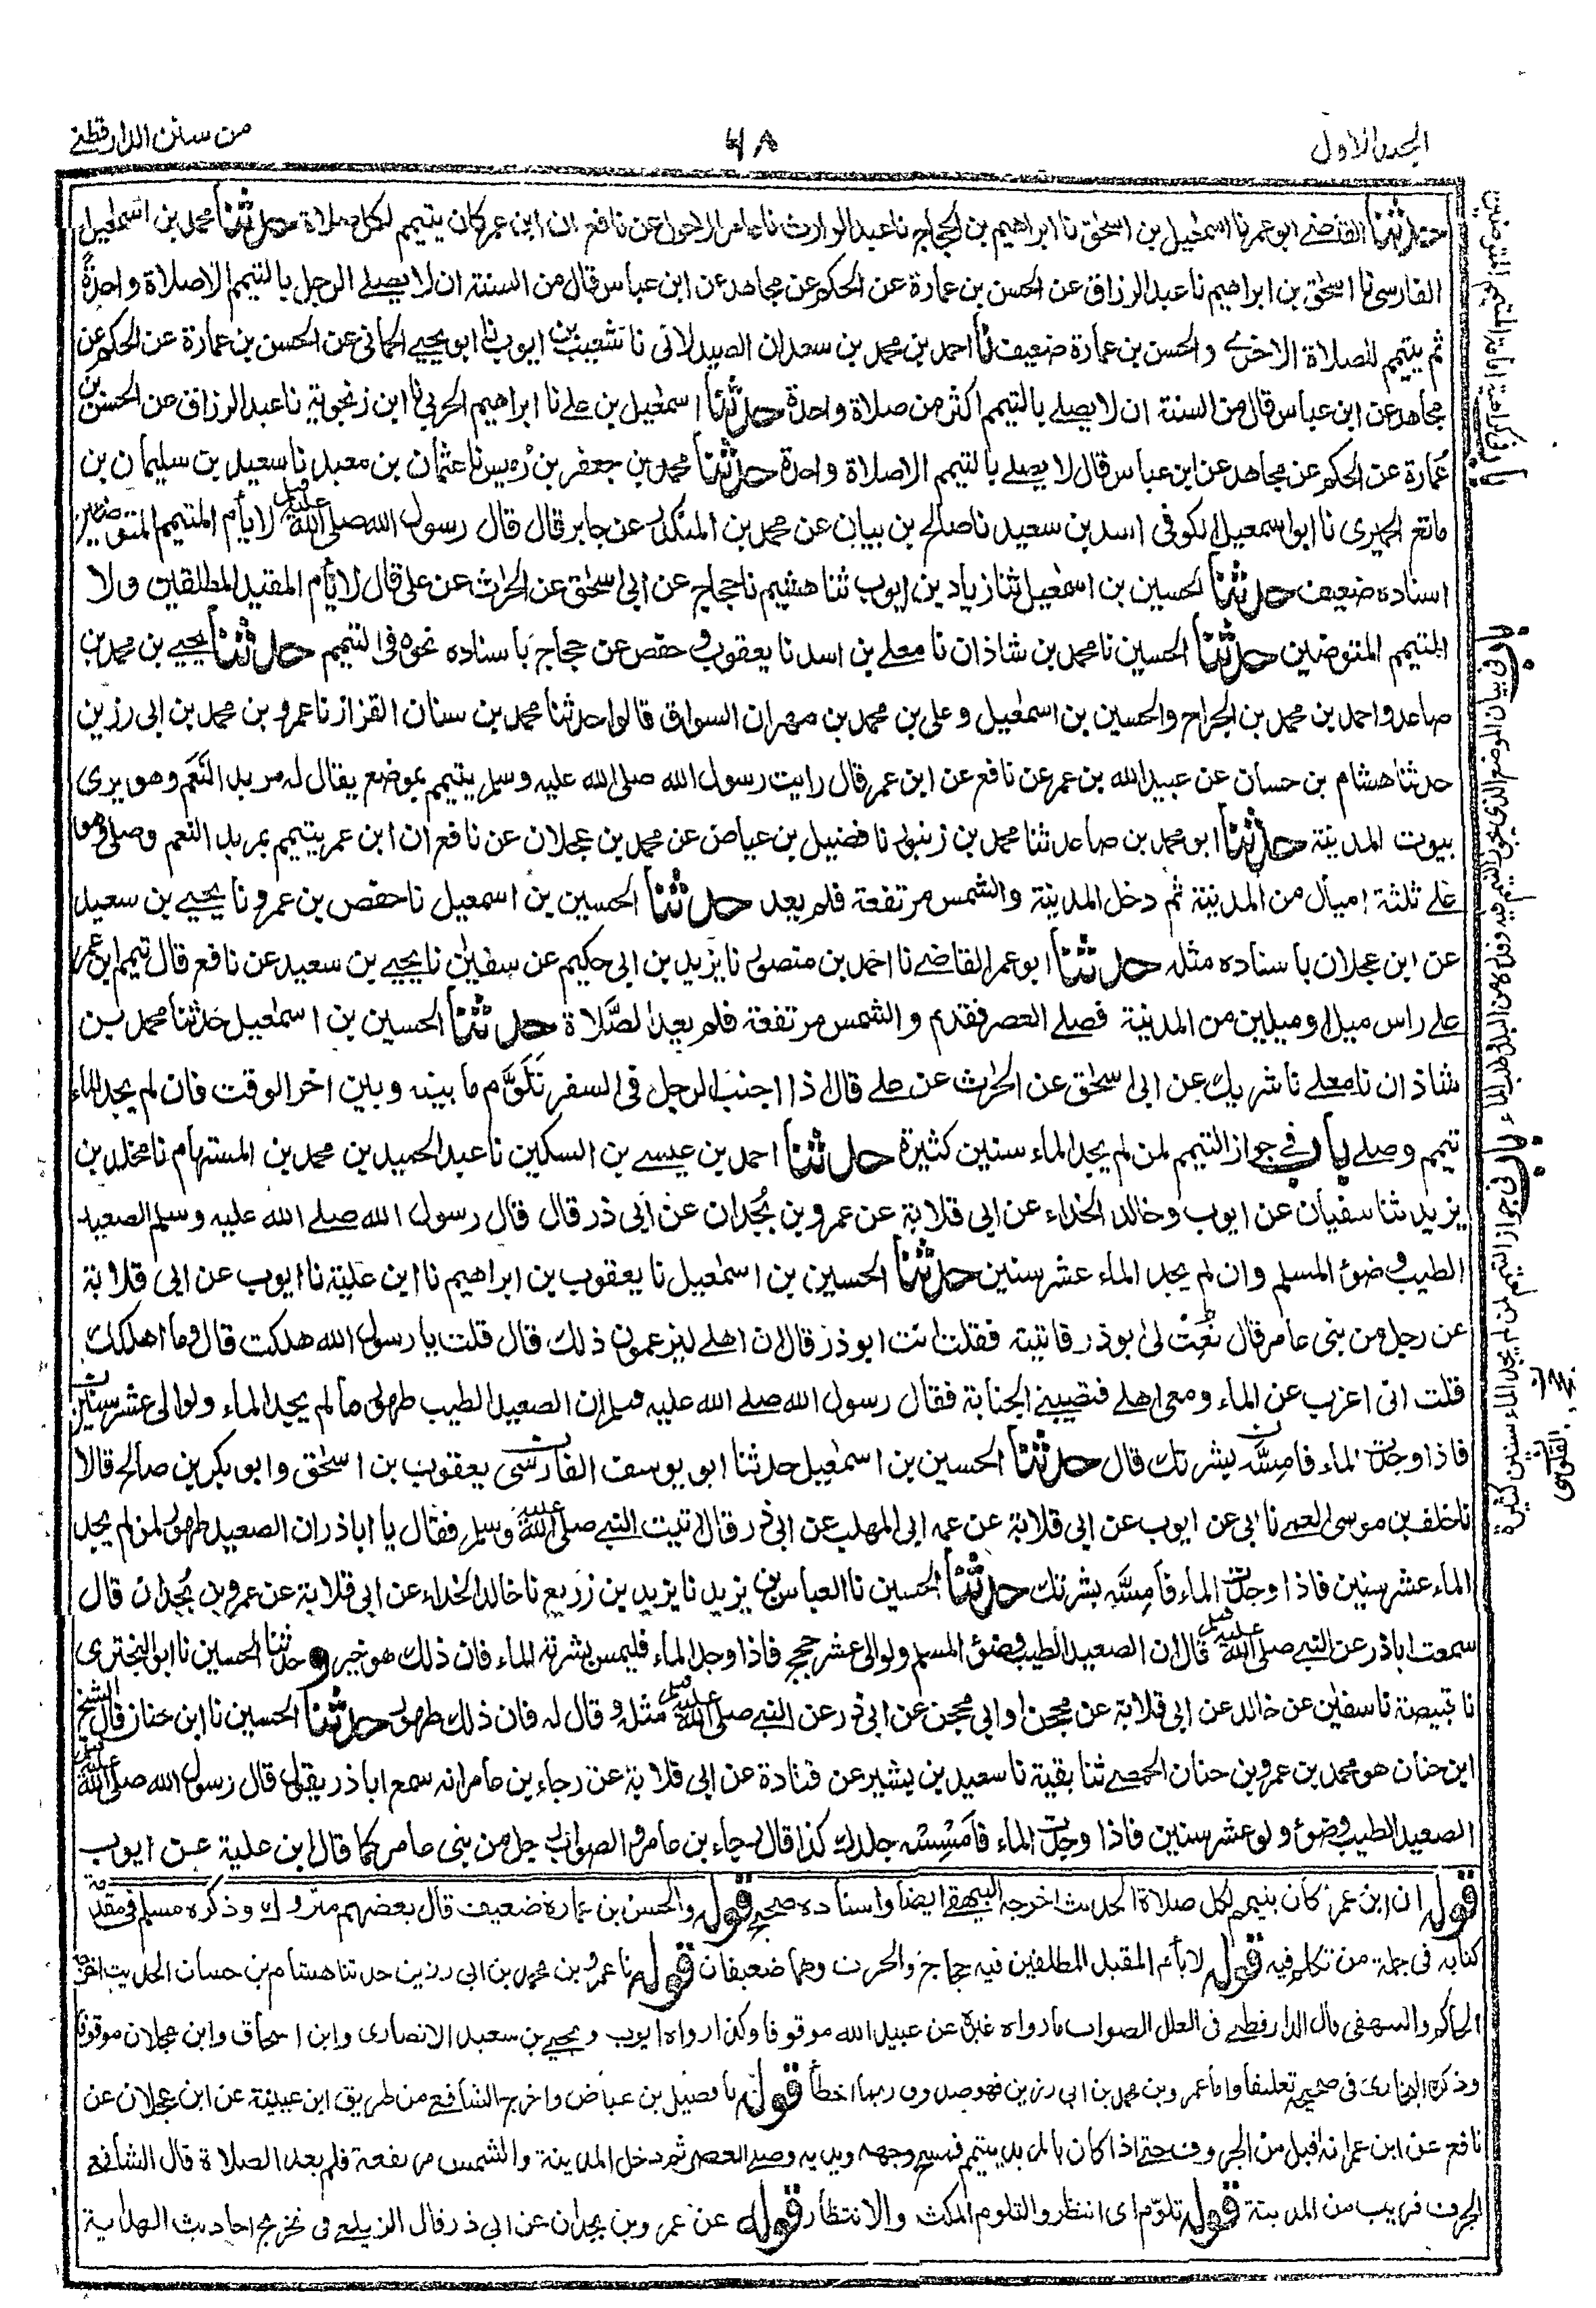 الجلد الاول
٦٨
من سنن الدارقطني
حدثنا القاضي ابو عمر نا اسمعيل بن اسحق نا ابراهيم بن الحجاج نا عبد الوارث نا عامر الاحول عن نافع ان ابن عمر كان يتيمم لكل صلاة حدثنا محمد بن اسمعيل
الفارسي نا اسحق بن ابراهيم نا عبد الرزاق عن الحسن بن عمارة عن الحكم عن مجاهد عن ابن عباس قال من السنة ان لا يصلي الرجل بالتيمم الا صلاة واحدةً
ثم يتيمم للصلاة الاخرى والحسن بن عمارة ضعيف نا احمد بن محمد بن سعدان الصيدلاني نا شعيب بن ايوب نا ابو يحيى الحماني عن الحسن بن عمارة عن الحكم عن
مجاهد عن ابن عباس قال من السنة ان لا يصلي بالتيمم اكثر من صلاة واحدة حدثنا اسمعيل بن علي نا ابراهيم الحربي نا ابن زنجوية نا عبد الرزاق عن الحسن بن
عمارة عن الحكم عن مجاهد عن ابن عباس قال لا يصلي بالتيمم الا صلاة واحدة حدثنا محمد بن جعفر بن رميس نا عثمان بن معبد نا سعيد بن سليمان بن
ماتع الحميري نا ابو اسمعيل الكوفي اسد بن سعيد نا صالح بن بيان عن محمد بن المنكدر عن جابر قال قال رسول الله صلى الله عليه وسلم لا يأم المتيمم المتوضئين
اسناده ضعيف حدثنا الحسين بن اسمعيل ثنا زياد بن ايوب ثنا هشيم نا حجاج عن ابي اسحق عن الحرث عن علي قال لا يأم المقيد المطلقين ولا
المتيمم المتوضئين حدثنا الحسين نا محمد بن شاذان نا معلى بن اسد نا يعقوب وحفص عن حجاج بأسناده نحوه في التيمم حدثنا يحيى بن محمد بن
صاعد واحمد بن محمد بن الجراح والحسين بن اسمعيل وعلي بن محمد بن مهران السواق قالوا حدثنا محمد بن سنان القزاز نا عمرو بن محمد بن ابي رزين
حدثنا هشام بن حسان عن عبيد الله بن عمر عن نافع عن ابن عمر قال رايت رسول الله صلى الله عليه وسلم يتيمم بموضع يقال له مربد النَّعَم وهو يرى
بيوت المدينة حدثنا ابو محمد بن صاعد ثنا محمد بن زنبور نا فضيل بن عياض عن محمد بن عجلان عن نافع ان ابن عمر يتيمم بمربد النعم وصلى وهو
على ثلثة اميال من المدينة ثم دخل المدينة والشمس مرتفعة فلم يعد حدثنا الحسين بن اسمعيل نا حفص بن عمرو نا يحيى بن سعيد
عن ابن عجلان باسناده مثله حدثنا ابو عمر القاضي نا احمد بن منصور نا يزيد بن ابي حكيم عن سفين نا يحيى بن سعيد عن نافع قال تيمم ابن عمر
على راس ميل او ميلين من المدينة فصلى العصر فقدم والشمس مرتفعة فلم يعد الصَّلاة حدثنا الحسين بن اسمعيل حدثنا محمد بن
شاذان نا معلى نا شريك عن ابي اسحق عن الحرث عن علي قال اذا اجنب الرجل في السفر تَلَوَّم ما بينه وبين اخر الوقت فان لم يجد الماء
تيمم وصلى باب في جواز التيمم لمن لم يجد الماء سنين كثيرة حدثنا احمد بن عيسى بن السكين نا عبد الحميد بن محمد بن المستهام نا مخلد بن
يزيد ثنا سفيان عن ايوب وخالد الحذاء عن ابي قلابة عن عمرو بن بُجدان عن ابي ذر قال قال رسول الله صلى الله عليه وسلم الصعيد
الطيب وضوُ المسلم وان لم يجد الماء عشر سنين حدثنا الحسين بن اسمعيل نا يعقوب بن ابراهيم نا ابن علية نا ايوب عن ابي قلابة
عن رجل من بني عامر قال نُعِتَ لي ابو ذر فاتيته فقلت انت ابو ذر قال ان اهلي ليزعمون ذلك قال قلت يا رسول الله هلكت قال وما اهلكك
قلت اني اعزب عن الماء ومعي اهلي فتصيبني الجنابة فقال رسول الله صلى الله عليه وسلم ان الصعيد الطيب طهور ما لم يجد الماء ولو الى عشر سنين
فاذا وجدت الماء فامِسَّه بشرتك قال حدثنا الحسين بن اسمعيل حدثنا ابو يوسف الفارسي يعقوب بن اسحق وابو بكر بن صالح قالا
نا خلف بن موسى العمي نا ابي عن ايوب عن ابي قلابة عن عمه ابي المهلب عن ابي ذر قال اتيت النبي صلى الله عليه وسلم فقال يا اباذر ان الصعيد طهور لمن لم يجد
الماء عشر سنين فاذا وجدت الماء فأمِسَّه بشرتك حدثنا الحسين نا العباس بن يزيد نا يزيد بن زريع نا خالد الحذاء عن ابي قلابة عن عمرو بن بُجدان قال
سمعت اباذر عن النبي صلى الله عليه وسلم قال ان الصعيد الطيب وضوُ المسلم ولو الى عشر حجج فاذا وجد الماء فليمس بشرته الماء فان ذلك هو خير وحدثنا الحسين نا ابو البختري
نا قبيصة نا سفين عن خالد عن ابي قلابة عن محجن او ابي محجن عن ابي ذر عن النبي صلى الله عليه وسلم مثله وقال له فان ذلك طهور حدثنا الحسين نا ابن حنان قال الشيخ
ابن حنان هو محمد بن عمرو بن حنان الحمصي ثنا بقية نا سعيد بن بشير عن قتادة عن ابي قلابة عن رجاء بن عامر انه سمع اباذر يقول قال رسول الله صلى الله عليه وسلم
الصعيد الطيب وضوُ ولو عشر سنين فاذا وجدت الماء فاَمْسِسْه جلدك كذا قال رجاء بن عامر والصواب رجل من بني عامر كما قال ابن علية عن ايوب
قوله ان ابن عمر كان يتيمم لكل صلاة الحديث اخرجه البيهقي ايضا واسناده صحيح قوله والحسن بن عمارة ضعيف قال بعضهم متروك وذكره مسلم في مقدمة
كتابه في جملة من تكلم فيه قوله لا يأم المقيد المطلقين فيه حجاج والحرث وهما ضعيفان قوله نا عمرو بن محمد بن ابي رزين حدثنا هشام بن حسان الحديث اخرجه
الحاكم والبيهقي قال الدارقطني في العلل الصواب ما رواه غيره عن عبيد الله موقوفا وكذا رواه ايوب ويحيى بن سعيد الانصاري وابن اسحاق وابن عجلان موقوفا
وذكره البخاري في صحيحه تعليقا واما عمرو بن محمد بن ابي رزين فهو صدوق ربما اخطأ قوله نا فضيل بن عياض واخرج الشافعي من طريق ابن عيينة عن ابن عجلان عن
نافع عن ابن عمر انه اقبل من الجرف حتى اذا كان بالمربد يتيمم فمسح وجهه ويديه وصلى العصر ثم دخل المدينة والشمس مرتفعة فلم يعد الصلاة قال الشافعي
الجرف قريب من المدينة قوله تلوّم اى انتظر والتلوم المكث والانتظار قوله عن عمرو بن بجدان عن ابي ذر قال الزيلعي في تخريج احاديث الهداية
باب في كراهية امامة المتيمم المتوضئين
باب في بيان الموضع الذي يجوز التيمم فيه وقدره من البلد وطلب الماء
باب في جواز التيمم لمن لم يجد الماء سنين كثيرة